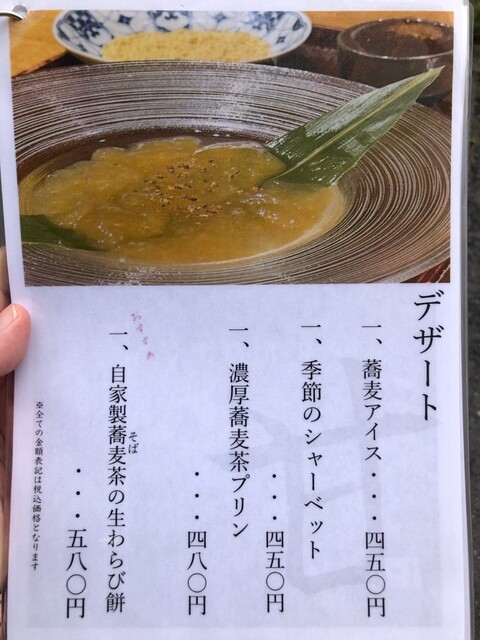 デザート
一、蕎麦アイス・・・四五〇円
一、季節のシャーベット
・・・四五〇円
一、濃厚蕎麦茶プリン
・・・四八〇円
おすすめ
一、自家製蕎麦茶の生わらび餅
そば
・・・五八〇円
※全ての金額表記は税込価格となります